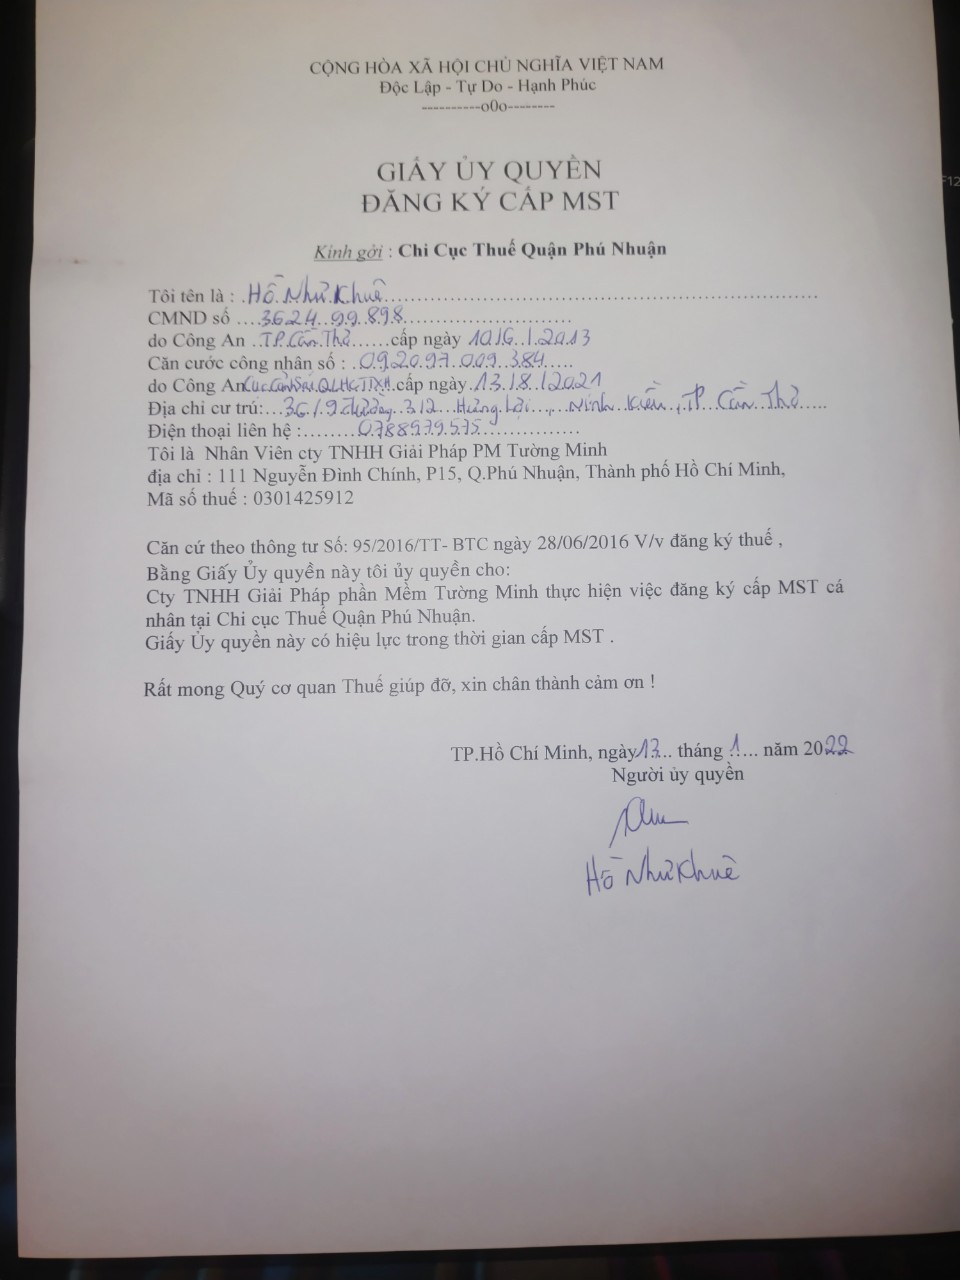 CỘNG HÒA XÃ HỘI CHỦ NGHĨA VIỆT NAM
Độc Lập - Tự Do - Hạnh Phúc
----------o0o--------
GIẤY ỦY QUYỀN
ĐĂNG KÝ CẤP MST
F12
Kính gởi : Chi Cục Thuế Quận Phú Nhuận
Tôi tên là : Hồ Như Khuê
CMND số 3624 99 898
do Công An TP. Cần Thơ cấp ngày 10/6/2013
Căn cước công nhân số : 092097 009 384
do Công An Cục Cảnh Sát QLHC TTXH cấp ngày 13/8/2021
Địa chỉ cư trú: 36/9 đường 3/2 Hưng Lợi, Ninh Kiều, TP Cần Thơ
Điện thoại liên hệ : 0788979575
Tôi là Nhân Viên cty TNHH Giải Pháp PM Tường Minh
địa chỉ : 111 Nguyễn Đình Chính, P15, Q.Phú Nhuận, Thành phố Hồ Chí Minh,
Mã số thuế : 0301425912
Căn cứ theo thông tư Số: 95/2016/TT- BTC ngày 28/06/2016 V/v đăng ký thuế ,
Bằng Giấy Ủy quyền này tôi ủy quyền cho:
Cty TNHH Giải Pháp phần Mềm Tường Minh thực hiện việc đăng ký cấp MST cá
nhân tại Chi cục Thuế Quận Phú Nhuận.
Giấy Ủy quyền này có hiệu lực trong thời gian cấp MST .
Rất mong Quý cơ quan Thuế giúp đỡ, xin chân thành cảm ơn !
TP.Hồ Chí Minh, ngày 13 tháng 1 năm 2022
Người ủy quyền
Hồ Như Khuê